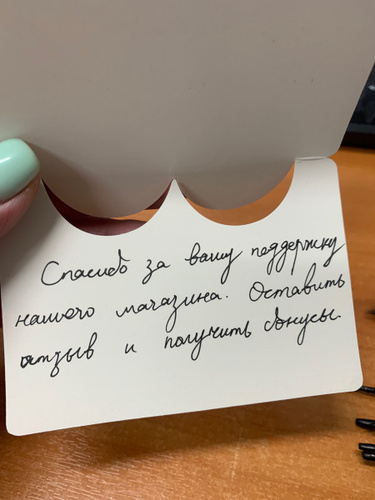 Спасибо за вашу поддержку
нашего магазина. Оставить
отзыв и получить бонусы.